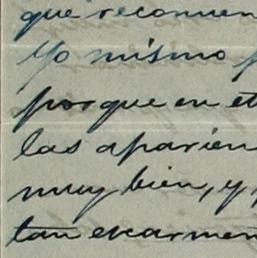 que reconven
Yo mismo p
porque en et
las aparien
muy bien, y
tan escarmen